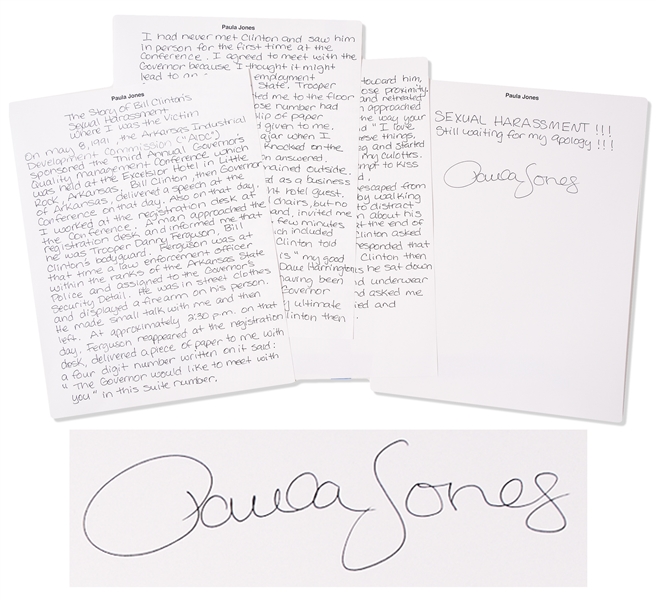 Paula Jones
The Story of Bill Clinton's
Sexual Harassment
Where I was the Victim
On May 8, 1991, the Arkansas Industrial
Development Commission ("AIDC")
sponsored the Third Annual Governor's
Quality Management Conference, which
was held at the Excelsior Hotel in Little
Rock, Arkansas. Bill Clinton, then Governor
of Arkansas, delivered a speech at the
Conference on that day. Also on that day,
I worked at the registration desk at
the Conference. A man approached the
registration desk and informed me that
he was Trooper Danny Ferguson, Bill
Clinton's bodyguard. Ferguson was at
that time a law enforcement officer
within the ranks of the Arkansas State
Police and assigned to the Governor's
Security Detail. He was in street clothes
and displayed a firearm on his person.
He made small talk with me and then
left. At approximately 2:30 p.m. on that
day, Ferguson reappeared at the registration
desk, delivered a piece of paper to me with
a four digit number written on it said:
"The Governor would like to meet with
you" in this suite number.
Paula Jones
I had never met Clinton and saw him
in person for the first time at the
Conference. I agreed to meet with the
Governor because I thought it might
lead to an employment
State. Trooper
ted me to the floor
ose number had
slip of paper
d given to me.
ajar when I
Knocked on the
on answered.
mained outside.
ed as a business
ht hotel guest.
chairs, but no
and, invited me
few minutes
ich included
Clinton told
rs "my good
Dave Harrington
having been
Governor
ultimate
Clinton then
toward him,
ose proximity.
and retreated
approached
me way your
id "I love
ese things.
eg, and started
my culottes.
mpt to kiss
escaped from
by walking
to distract
n about his
t the end of
Clinton asked
responded that
Clinton then
s he sat down
nd underwear
nd asked me
ied and
Paula Jones
SEXUAL HARASSMENT!!!
Still waiting for my apology!!!
Paula Jones
Paula Jones